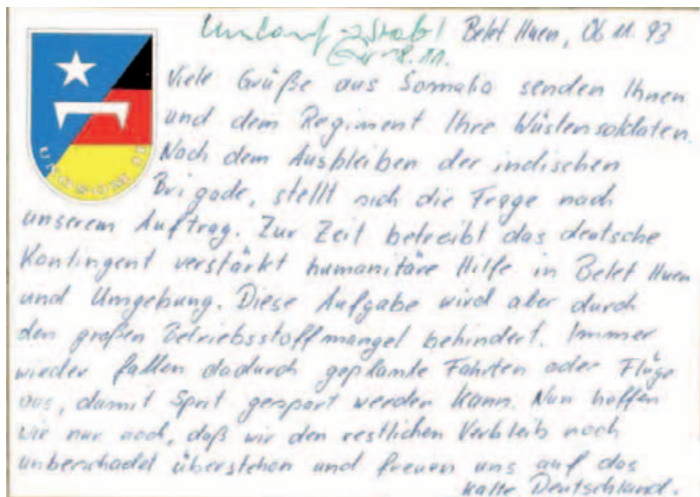 Umlauf Stabl Belet Huen, 06 11. 93
8.11.
Viele Grüße aus Somalia senden Ihnen
und dem Regiment Ihre Wüstensoldaten.
Nach dem Ausbleiben der indischen
Brigade, stellt sich die Frage nach
unserem Auftrag. Zur Zeit betreibt das deutsche
Kontingent verstärkt humanitäre Hilfe in Belet Huen
und Umgebung. Diese Aufgabe wird aber durch
den großen Betriebsstoffmangel behindert. Immer
wieder fallen dadurch geplante Fahrten oder Flüge
aus, damit Sprit gespart werden kann. Nun hoffen
wir nur noch, daß wir den restlichen Verbleib noch
unbeschadet überstehen und freuen uns auf das
kalte Deutschland.
UNOSOM II